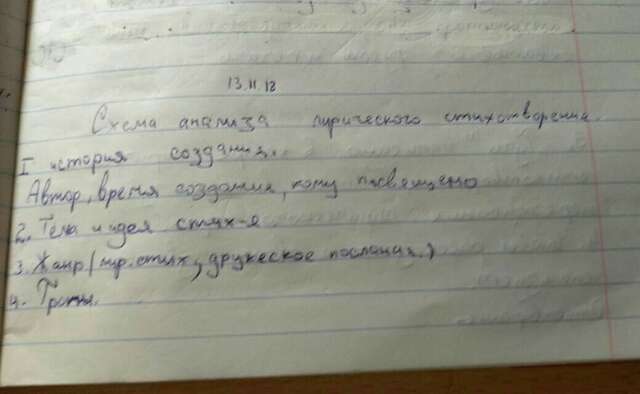 13.11.18
Схема анализа лирического стихотворения.
I история создания.
Автор, время создания, кому посвещено
2. Тема и идея стих-я.
3. Жанр (лир. стих, дружеское послание.)
4. Тропы.